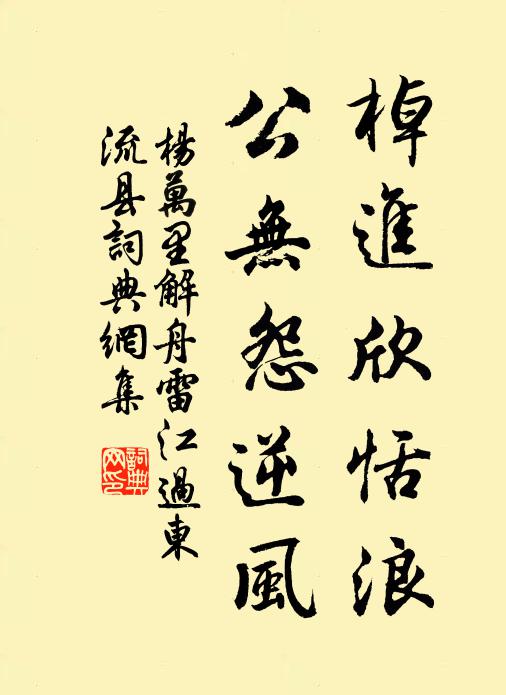 棹進欣恬浪
公無怨逆風
楊萬里解舟雷江過東
流县詞典網集
詞典
网印